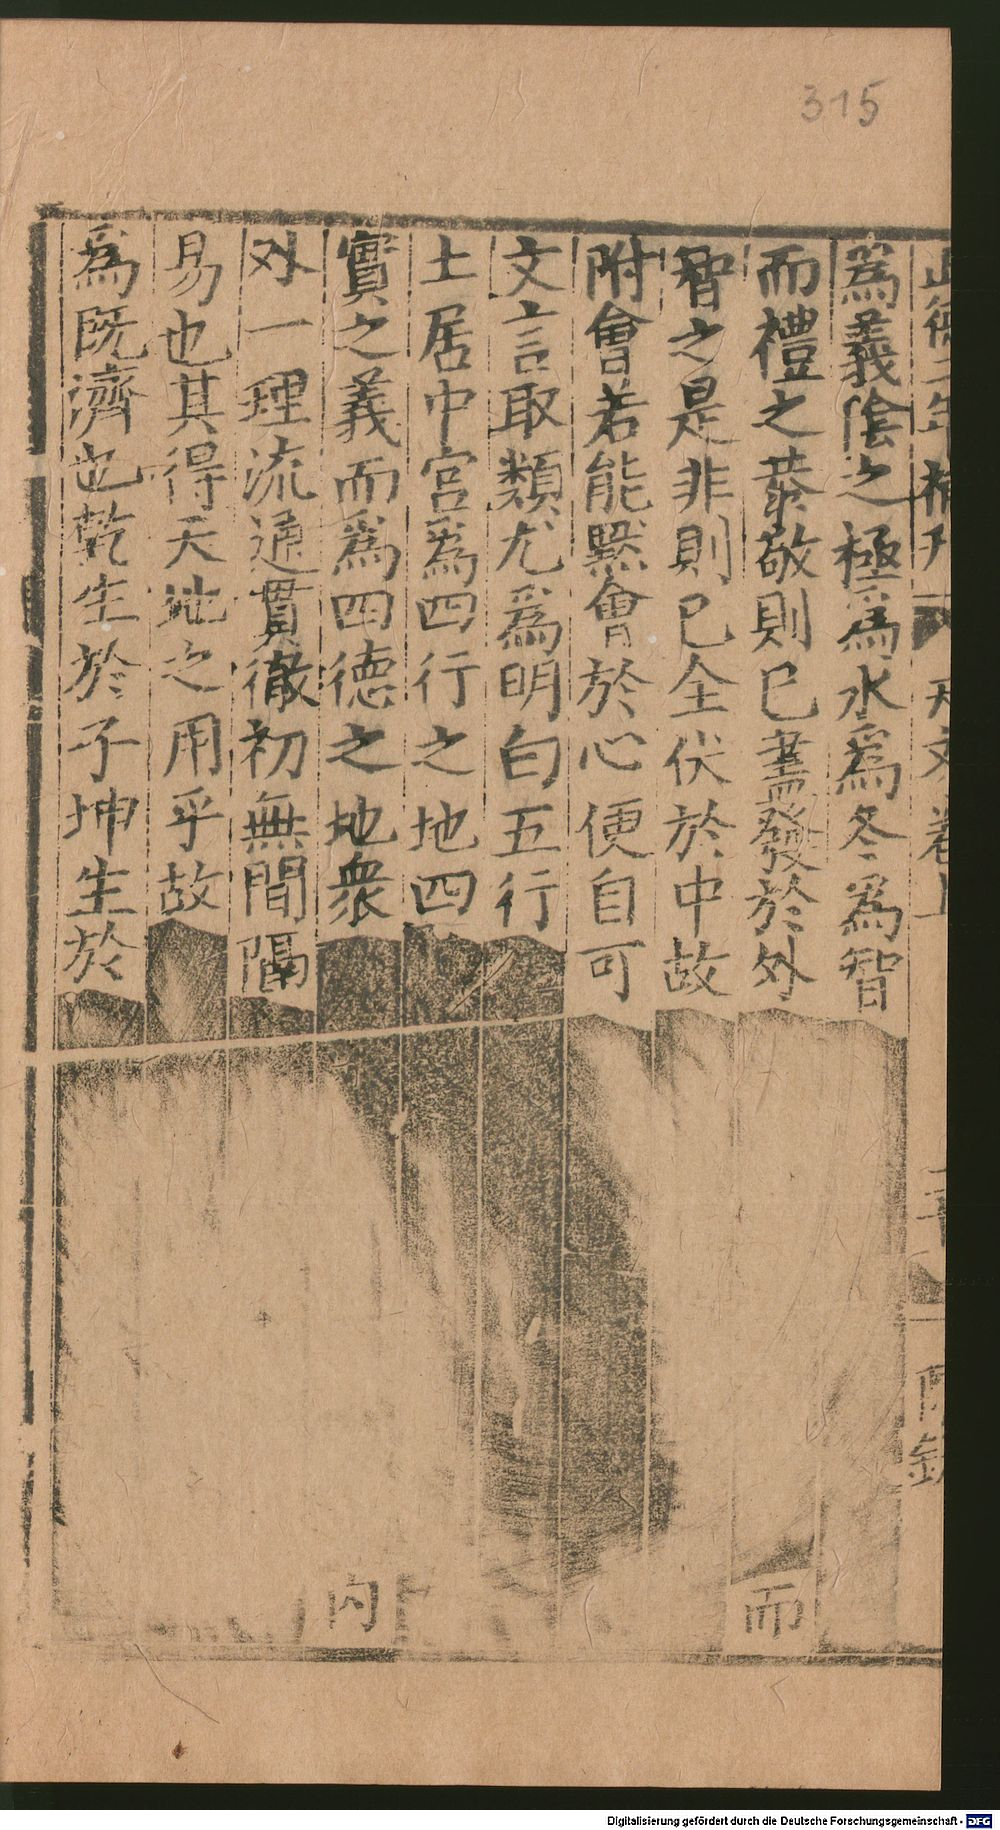 315
正德二年補刊 天文卷上
爲義陰之極爲水爲冬爲智
而禮之恭敬則已盡發於外 而
智之是非則已全伏於中故
附會若能默會於心便自可
文言取類尤爲明白五行
土居中宮爲四行之地四
實之義而爲四德之地衆 內
外一理流通貫徹初無間隔
易也其得天地之用乎故
爲既濟也乾生於子坤生於
Digitalisierung gefördert durch die Deutsche Forschungsgemeinschaft - DFG